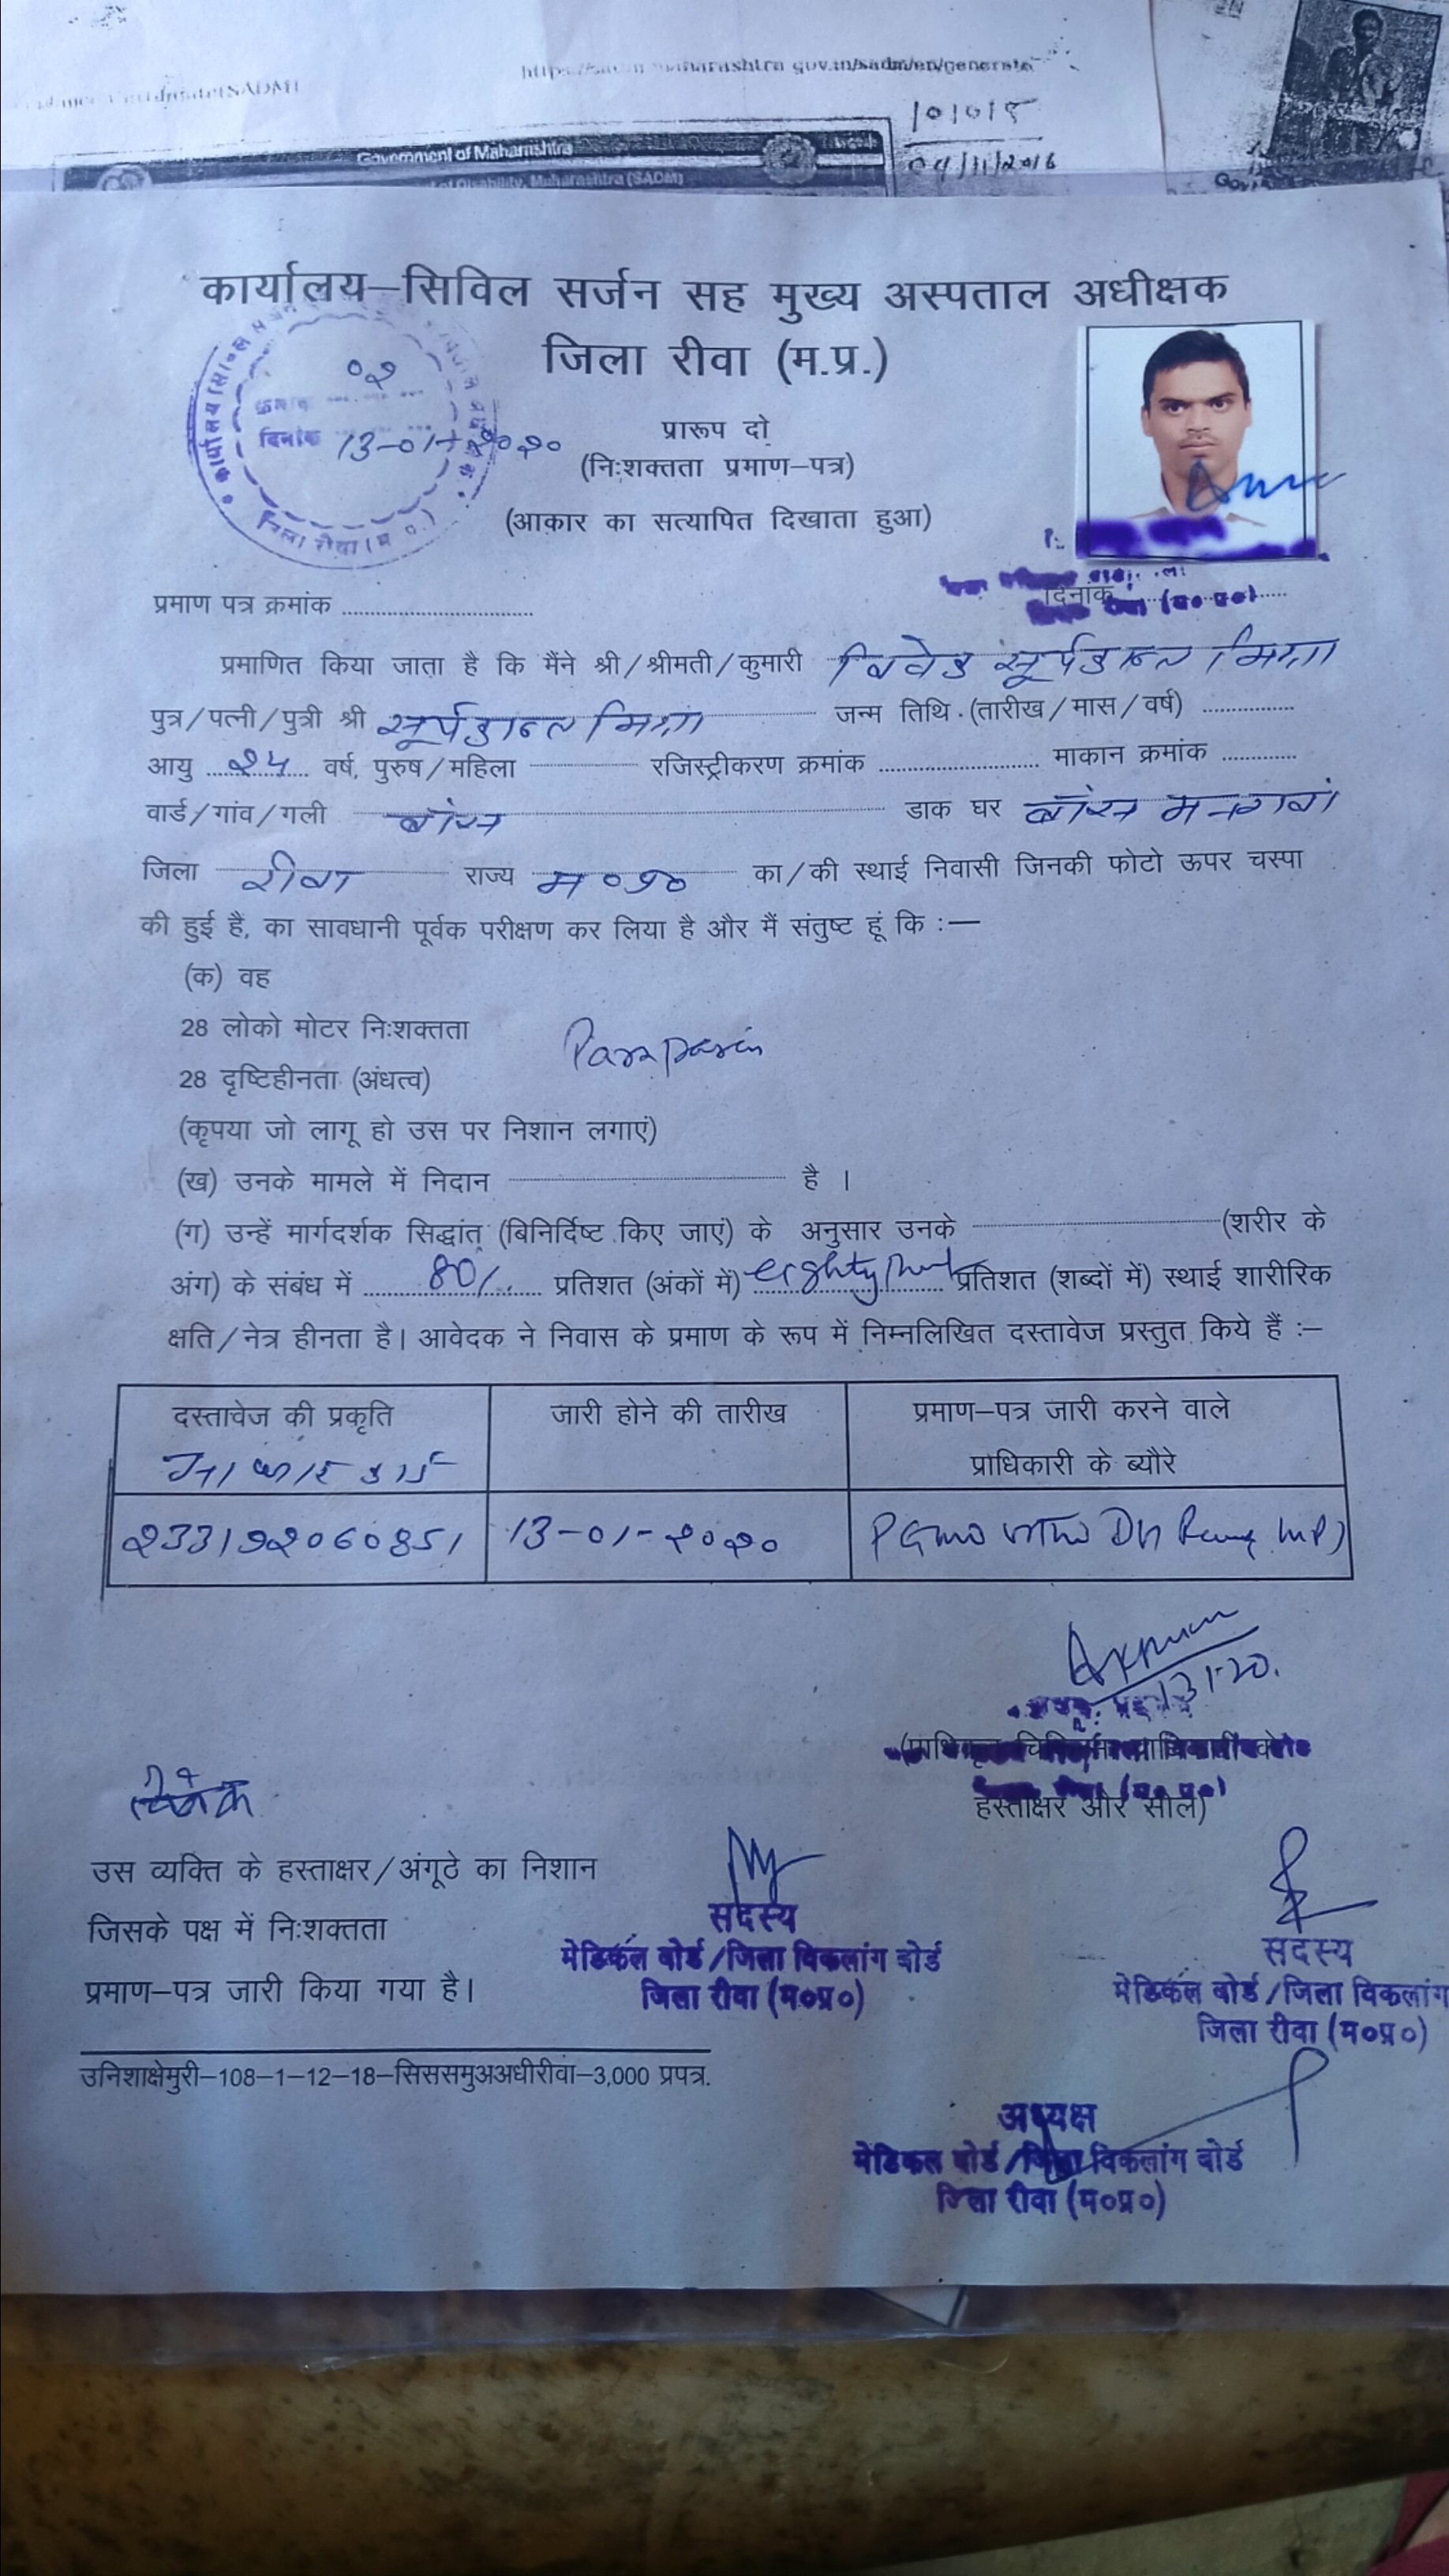 Government of Maharashtra
of Disability, Maharashtra (SADM)
04/11/2016
कार्यालय–सिविल सर्जन सह मुख्य अस्पताल अधीक्षक
जिला रीवा (म.प्र.)
०२
दिनांक 13-01-२०२०
प्रारूप दो
(निःशक्तता प्रमाण–पत्र)
(आकार का सत्यापित दिखाता हुआ)
प्रमाण पत्र क्रमांक
दिनांक
(म०प्र०)
प्रमाणित किया जाता है कि मैंने श्री/श्रीमती/कुमारी विवेक सूर्यकान्त मिश्रा
पुत्र/पत्नी/पुत्री श्री सूर्यकान्त मिश्रा जन्म तिथि (तारीख/मास/वर्ष)
आयु २५ वर्ष, पुरुष/महिला रजिस्ट्रीकरण क्रमांक माकान क्रमांक
वार्ड/गांव/गली बांस डाक घर बांस मनगवां
जिला रीवा राज्य म०प्र० का/की स्थाई निवासी जिनकी फोटो ऊपर चस्पा
की हुई है, का सावधानी पूर्वक परीक्षण कर लिया है और मैं संतुष्ट हूं कि :—
(क) वह
28 लोको मोटर निःशक्तता
28 दृष्टिहीनता (अंधत्व)
(कृपया जो लागू हो उस पर निशान लगाएं)
(ख) उनके मामले में निदान है ।
(ग) उन्हें मार्गदर्शक सिद्धांत (बिनिर्दिष्ट किए जाएं) के अनुसार उनके (शरीर के
अंग) के संबंध में 80/. प्रतिशत (अंकों में) eighty प्रतिशत (शब्दों में) स्थाई शारीरिक
क्षति/नेत्र हीनता है। आवेदक ने निवास के प्रमाण के रूप में निम्नलिखित दस्तावेज प्रस्तुत किये हैं :–
दस्तावेज की प्रकृति जारी होने की तारीख प्रमाण–पत्र जारी करने वाले
आधार कार्ड प्राधिकारी के ब्यौरे
13-01-२०२०
13-1-20.
(प्राधिकृत
हस्ताक्षर और सील)
विवेक
उस व्यक्ति के हस्ताक्षर/अंगूठे का निशान
जिसके पक्ष में निःशक्तता
प्रमाण–पत्र जारी किया गया है।
सदस्य
मेडिकल बोर्ड/जिला विकलांग बोर्ड
जिला रीवा (म०प्र०)
सदस्य
मेडिकल बोर्ड/जिला विकलांग
जिला रीवा (म०प्र०)
उनिशाक्षेमुरी–108–1–12–18–सिससमुअअधीरीवा–3,000 प्रपत्र.
अध्यक्ष
मेडिकल बोर्ड/जिला विकलांग बोर्ड
जिला रीवा (म०प्र०)